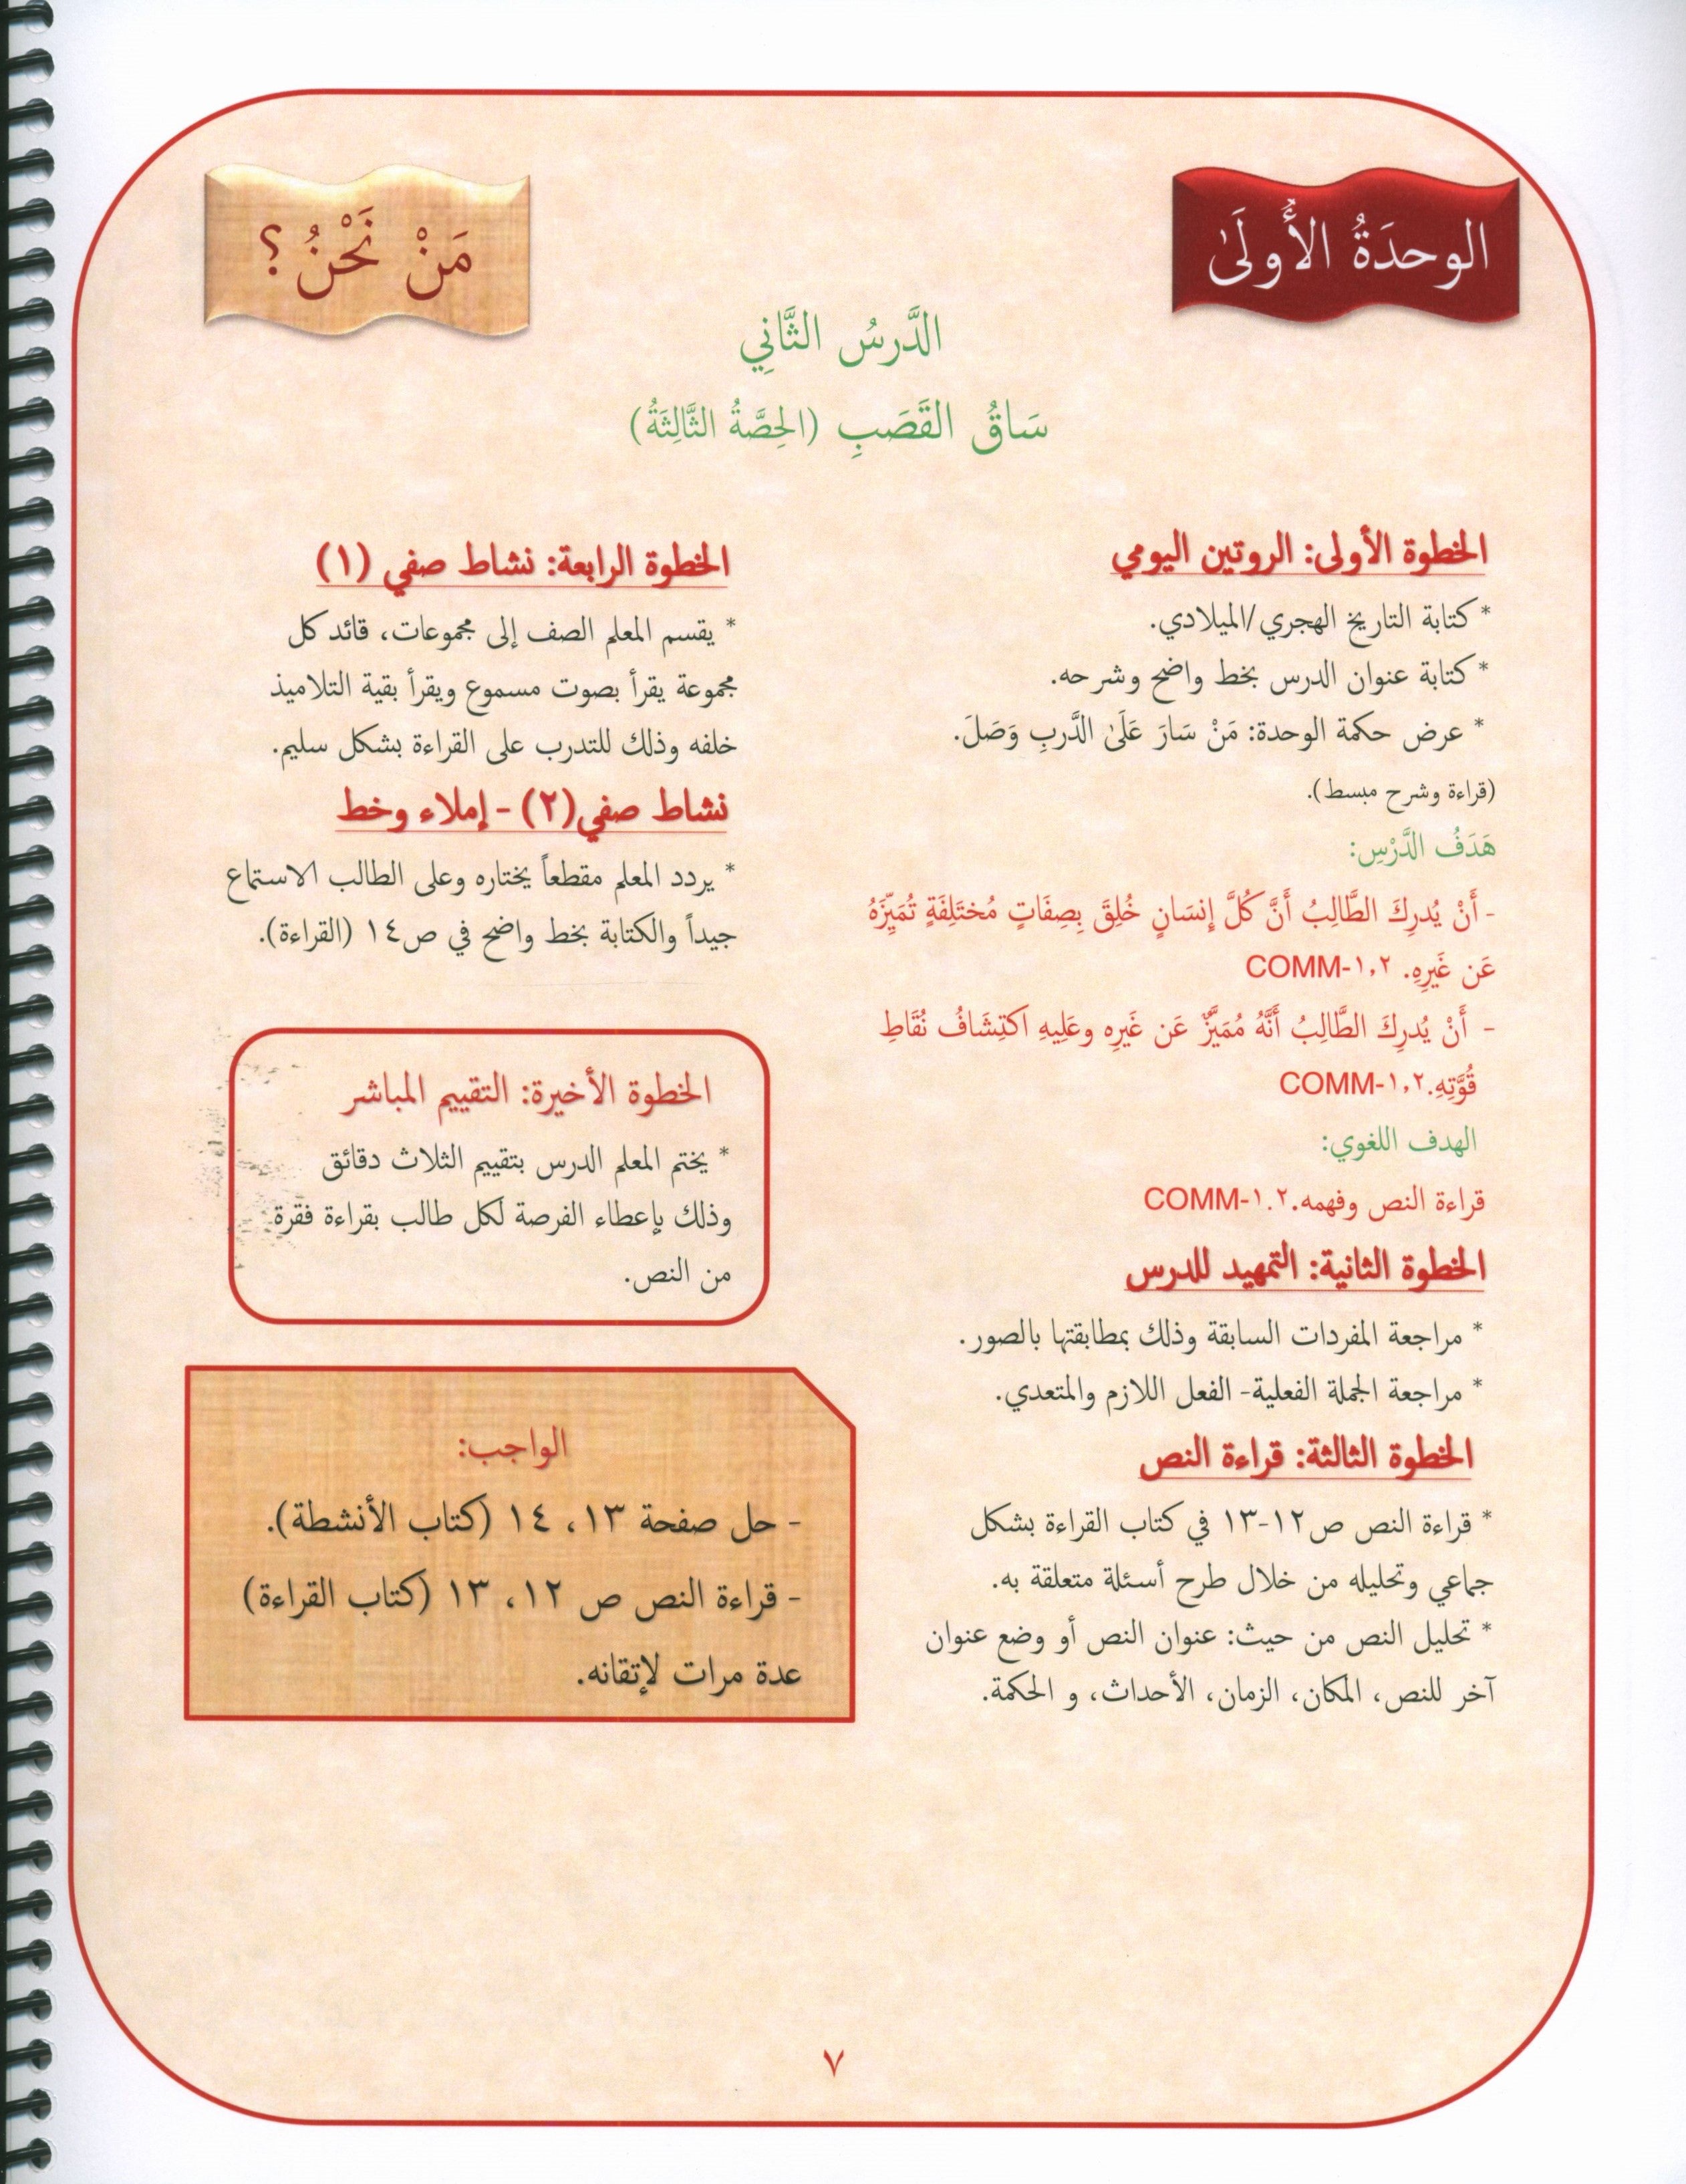 الوحدَةُ الأُولَىٰ
مَنْ نَحْنُ؟
الدَّرسُ الثَّانِي
سَاقُ القَصَبِ (الحِصَّةُ الثَّالِثَةُ)
الخطوة الأولى: الروتين اليومي
* كتابة التاريخ الهجري/الميلادي.
* كتابة عنوان الدرس بخط واضح وشرحه.
* عرض حكمة الوحدة: مَنْ سَارَ عَلَىٰ الدَّربِ وَصَلَ.
(قراءة وشرح مبسط).
هَدَفُ الدَّرْسِ:
- أَنْ يُدرِكَ الطَّالِبُ أَنَّ كُلَّ إِنسَانٍ خُلِقَ بِصِفَاتٍ مُختَلِفَةٍ تُمَيِّزَهُ
عَن غَيرِهِ. COMM-١,٢
- أَنْ يُدرِكَ الطَّالِبُ أَنَّهُ مُمَيَّزٌ عَن غَيرِه وعَلِيهِ اكتِشَافُ نُقَاطِ
قُوَّتِهِ.COMM-١,٢
الهدف اللغوي:
قراءة النص وفهمه.COMM-١.٢
الخطوة الثانية: التمهيد للدرس
* مراجعة المفردات السابقة وذلك بمطابقتها بالصور.
* مراجعة الجملة الفعلية- الفعل اللازم والمتعدي.
الخطوة الثالثة: قراءة النص
* قراءة النص ص١٢-١٣ في كتاب القراءة بشكل
جماعي وتحليله من خلال طرح أسئلة متعلقة به.
* تحليل النص من حيث: عنوان النص أو وضع عنوان
آخر للنص، المكان، الزمان، الأحداث، و الحكمة.
الخطوة الرابعة: نشاط صفي (١)
* يقسم المعلم الصف إلى مجموعات، قائد كل
مجموعة يقرأ بصوت مسموع ويقرأ بقية التلاميذ
خلفه وذلك للتدرب على القراءة بشكل سليم.
نشاط صفي(٢) - إملاء وخط
* يردد المعلم مقطعاً يختاره وعلى الطالب الاستماع
جيداً والكتابة بخط واضح في ص١٤ (القراءة).
الخطوة الأخيرة: التقييم المباشر
* يختم المعلم الدرس بتقييم الثلاث دقائق
وذلك بإعطاء الفرصة لكل طالب بقراءة فقرة
من النص.
الواجب:
- حل صفحة ١٣، ١٤ (كتاب الأنشطة).
- قراءة النص ص ١٢، ١٣ (كتاب القراءة)
عدة مرات لإتقانه.
٧